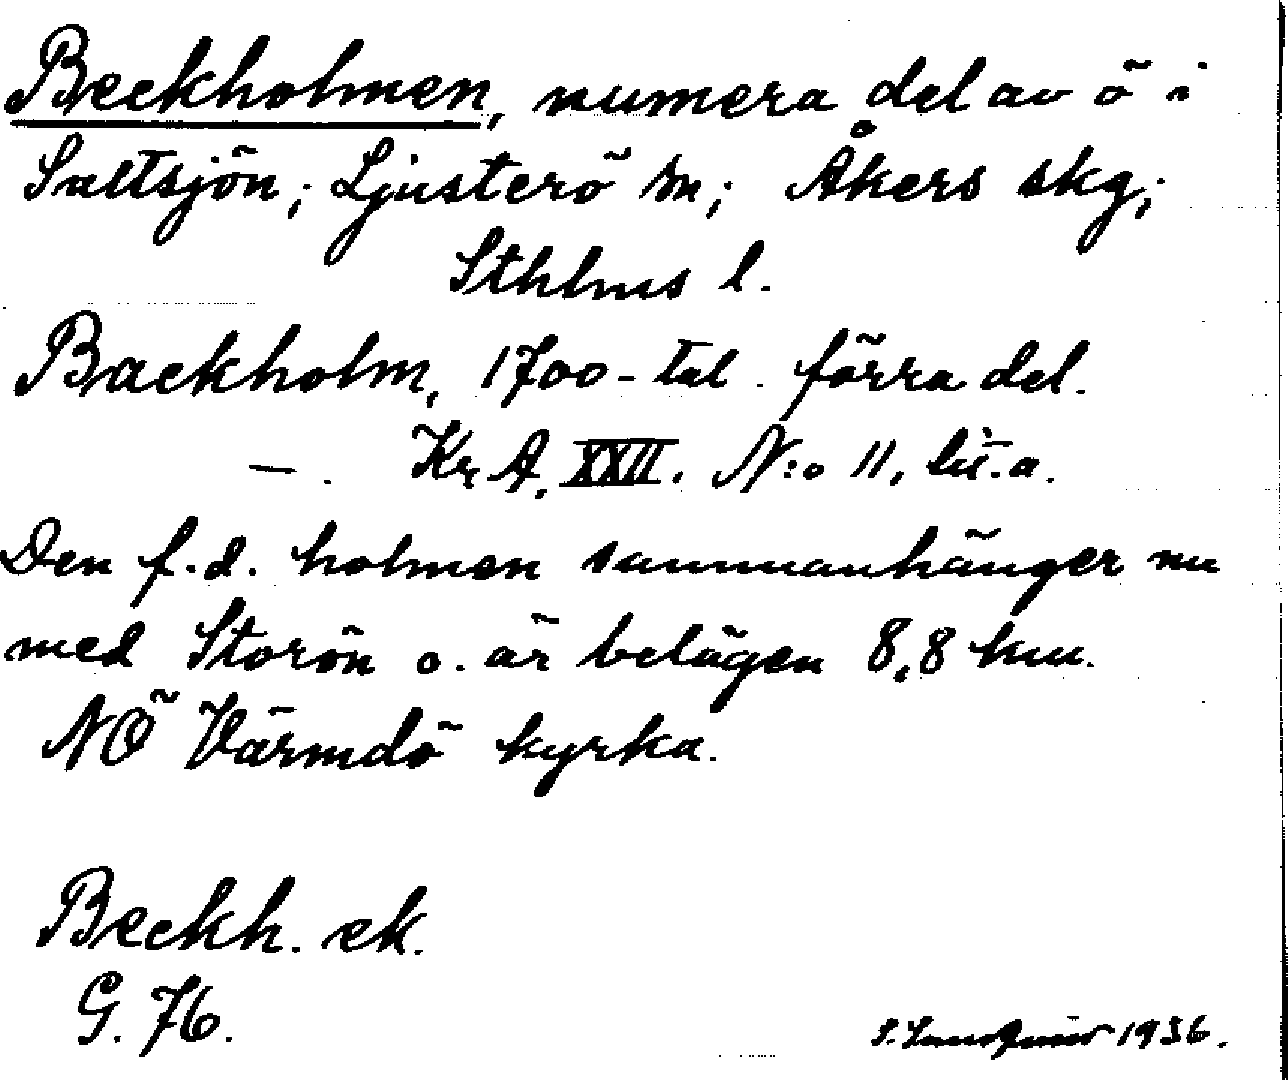 Beckholmen, numera del av ö i
Saltsjön; Ljusterö sn; Åkers skg;
Sthlms l.
Backholm, 1700-tal. förra del.
— . Kr. A. XXII. N:o 11, litt. a.
Den f.d. holmen sammanhänger nu
med Storön o. är belägen 8,8 km.
NÖ Värmdö kyrka.
Beckh. ek.
G. 76.
S. 1936.